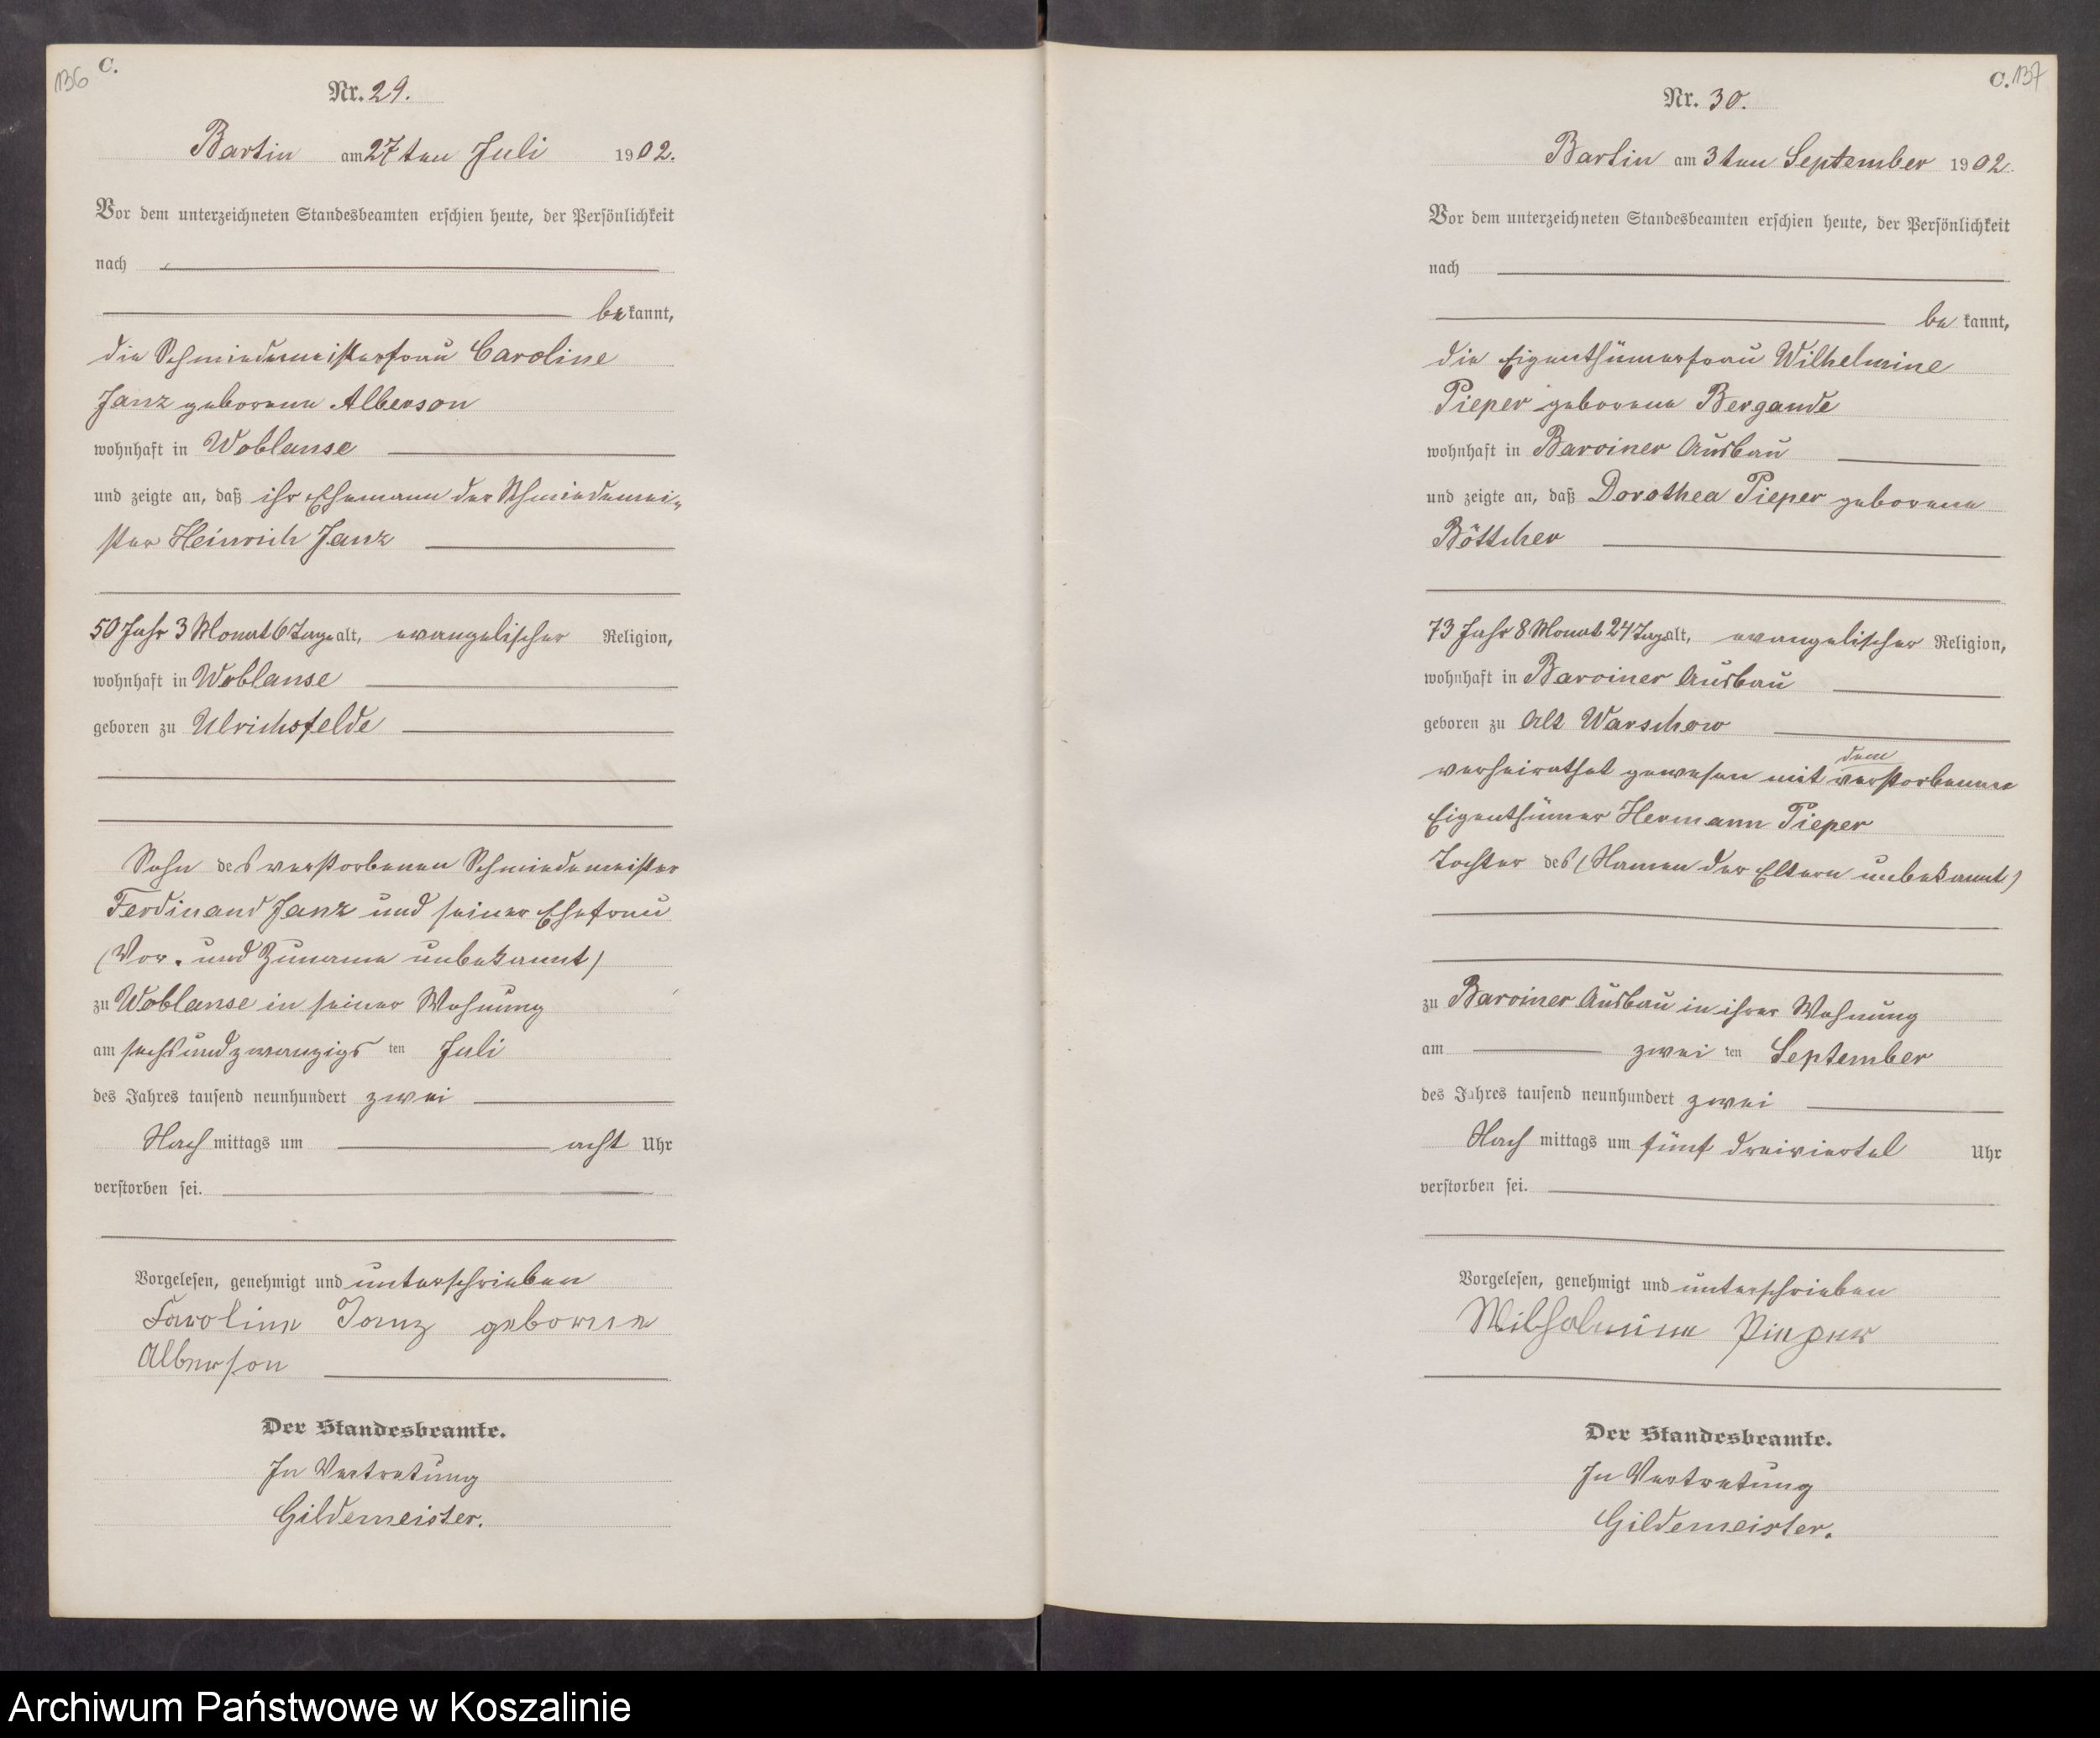 136 C.
Nr. 29.
Bartin am 27ten Juli 1902.
Vor dem unterzeichneten Standesbeamten erschien heute, der Persönlichkeit
nach
bekannt,
die Schmiedemeisterfrau Caroline
Janz geborene Alberson
wohnhaft in Woblanse
und zeigte an, daß ihr Ehemann der Schmiedemei-
ster Heinrich Janz
50 Jahr 3 Monat 6 Tage alt, evangelischer Religion,
wohnhaft in Woblanse
geboren zu Ulrichsfelde
Sohn des verstorbenen Schmiedemeister
Ferdinand Janz und seiner Ehefrau
(Vor- und Zuname unbekannt)
zu Woblanse in seiner Wohnung
am sechsundzwanzigsten Juli
des Jahres tausend neunhundert zwei
Nachmittags um acht Uhr
verstorben sei.
Vorgelesen, genehmigt und unterschrieben
Caroline Janz geborene
Alberson
Der Standesbeamte.
In Vertretung
Gildemeister.
C. 137
Nr. 30.
Bartin am 3ten September 1902.
Vor dem unterzeichneten Standesbeamten erschien heute, der Persönlichkeit
nach
bekannt,
die Eigenthümerfrau Wilhelmine
Pieper geborene Bergande
wohnhaft in Barviner Ausbau
und zeigte an, daß Dorothea Pieper geborene
Böttcher
73 Jahr 8 Monat 24 Tage alt, evangelischer Religion,
wohnhaft in Barviner Ausbau
geboren zu Alt Warschow
verheirathet gewesen mit dem verstorbenen
Eigenthümer Hermann Pieper
Tochter des (Namen der Eltern unbekannt)
zu Barviner Ausbau in ihrer Wohnung
am zweiten September
des Jahres tausend neunhundert zwei
Nachmittags um fünf dreiviertel Uhr
verstorben sei.
Vorgelesen, genehmigt und unterschrieben
Wilhelmine Pieper
Der Standesbeamte.
In Vertretung
Gildemeister.
Archiwum Państwowe w Koszalinie